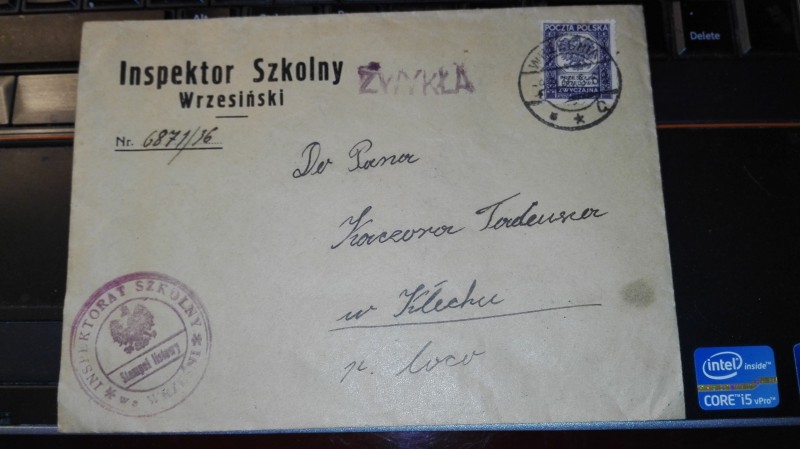 Delete
Inspektor Szkolny
Wrzesiński
ZWYKŁA
POCZTA POLSKA
ZWYCZAJNA
Nr. 6871/36
Do Pana
Kaczora Tadeusza
w Kłecku
p. loco
INSPEKTORAT SZKOLNY
Stempel listowy
we WRZEŚNI
intel inside™
CORE™ i5 vPro™